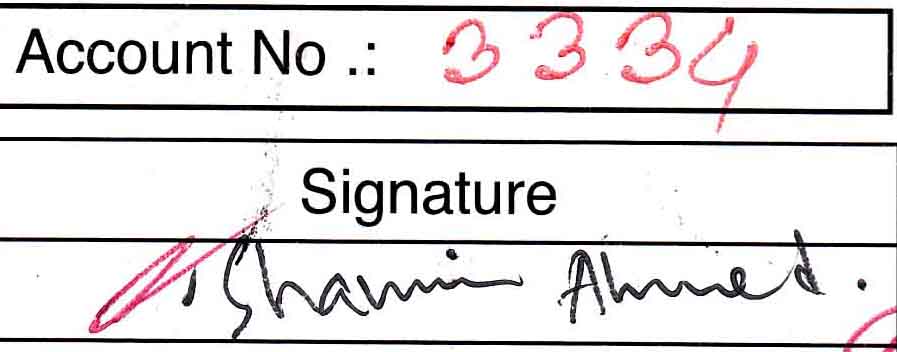 Account No .: 3334
Signature
Shamim Ahmed.